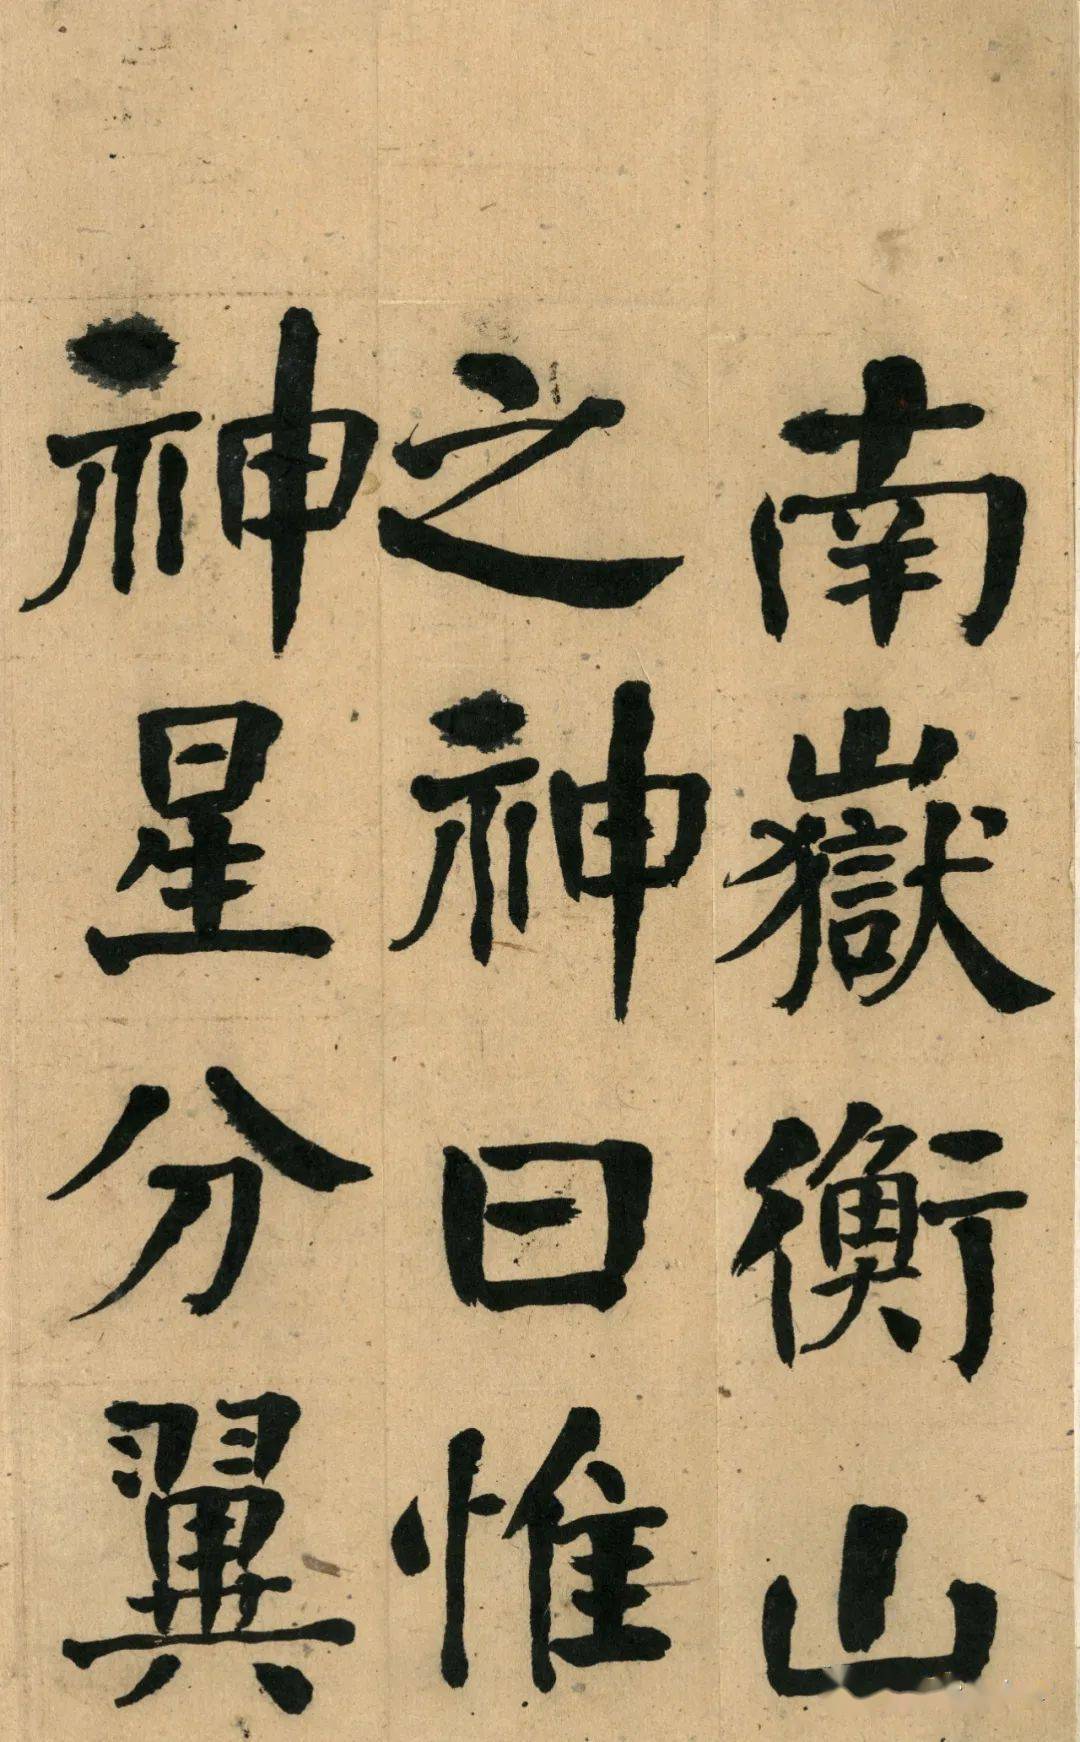 南嶽衡山
之神曰惟
神星分翼